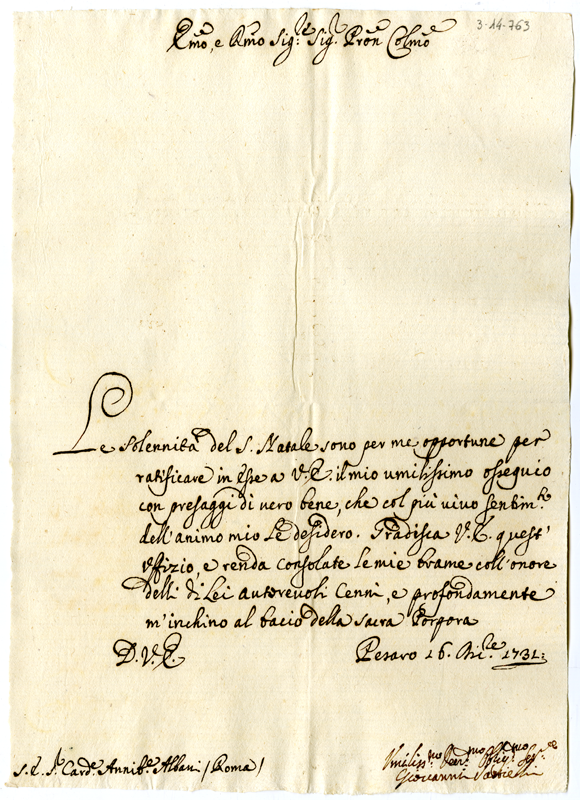 3-14-763
Emo, e Rmo Sig.re Sig.r Pron Colmo
Le Solennità del S. Natale sono per me opportune per
ratificare in esse a V.E. il mio umilissimo ossequio
con presaggi di vero bene, che col più vivo sentim.to
dell'animo mio Le desidero. Gradisca V.E. quest'
Uffizio, e renda consolate le mie brame coll'onore
delli di Lei autorevoli Cenni, e profondamente
m'inchino al bacio della Sacra Porpora
D.V.E. Pesaro 16. Xbre 1731:
Umiliss.mo Obl.mo
S.E. S.r Card.e Annib.e Albani (Roma) Giovanni